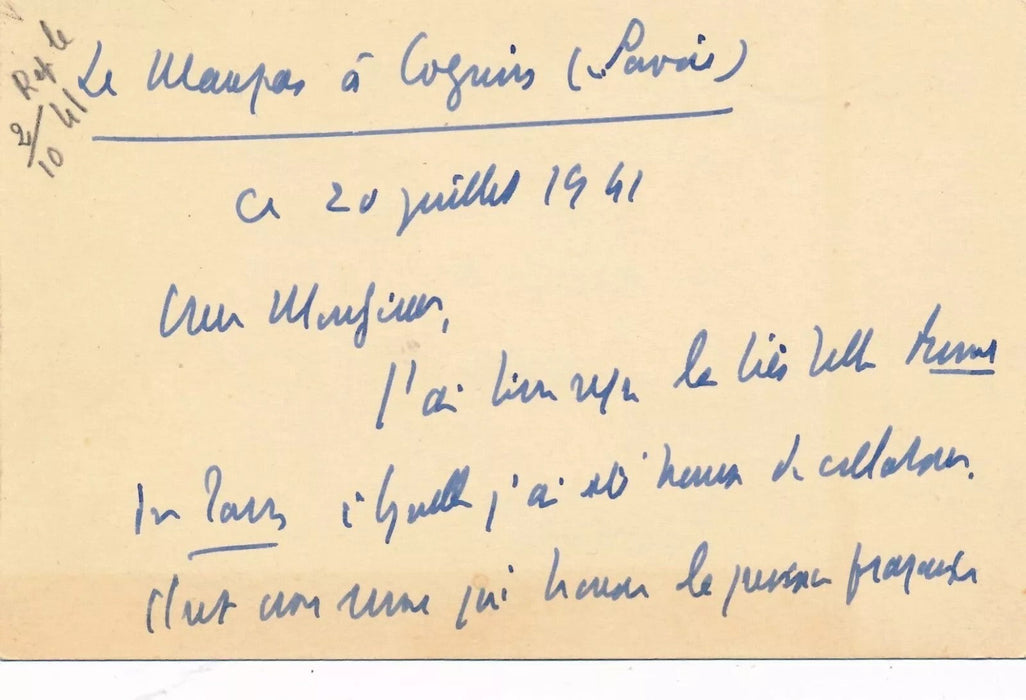 Rep le
2/10 41
Le Maupas à Cognin (Savoie)
Ce 20 juillet 1941
Cher Monsieur,
J'ai bien reçu la très belle Revue
de Paris à laquelle j'ai été heureux de collaborer.
C'est une revue qui honore la presse française